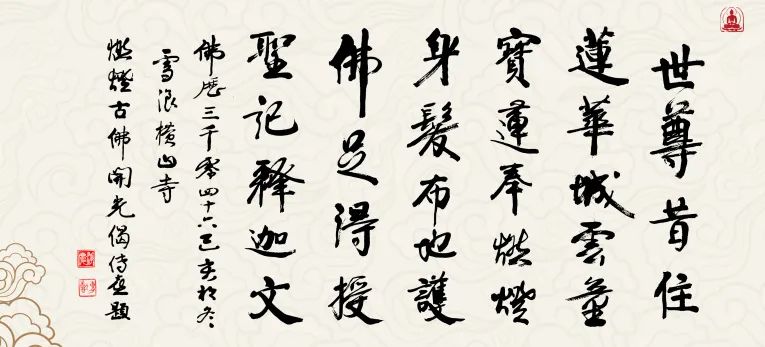 世尊昔住
蓮華城雲童
寶蓮奉燃燈
身髮布地護
佛足得授
聖記釋迦文
佛歷三千零四十六己亥初冬
雪浪橫山寺
燃燈古佛開光偈題